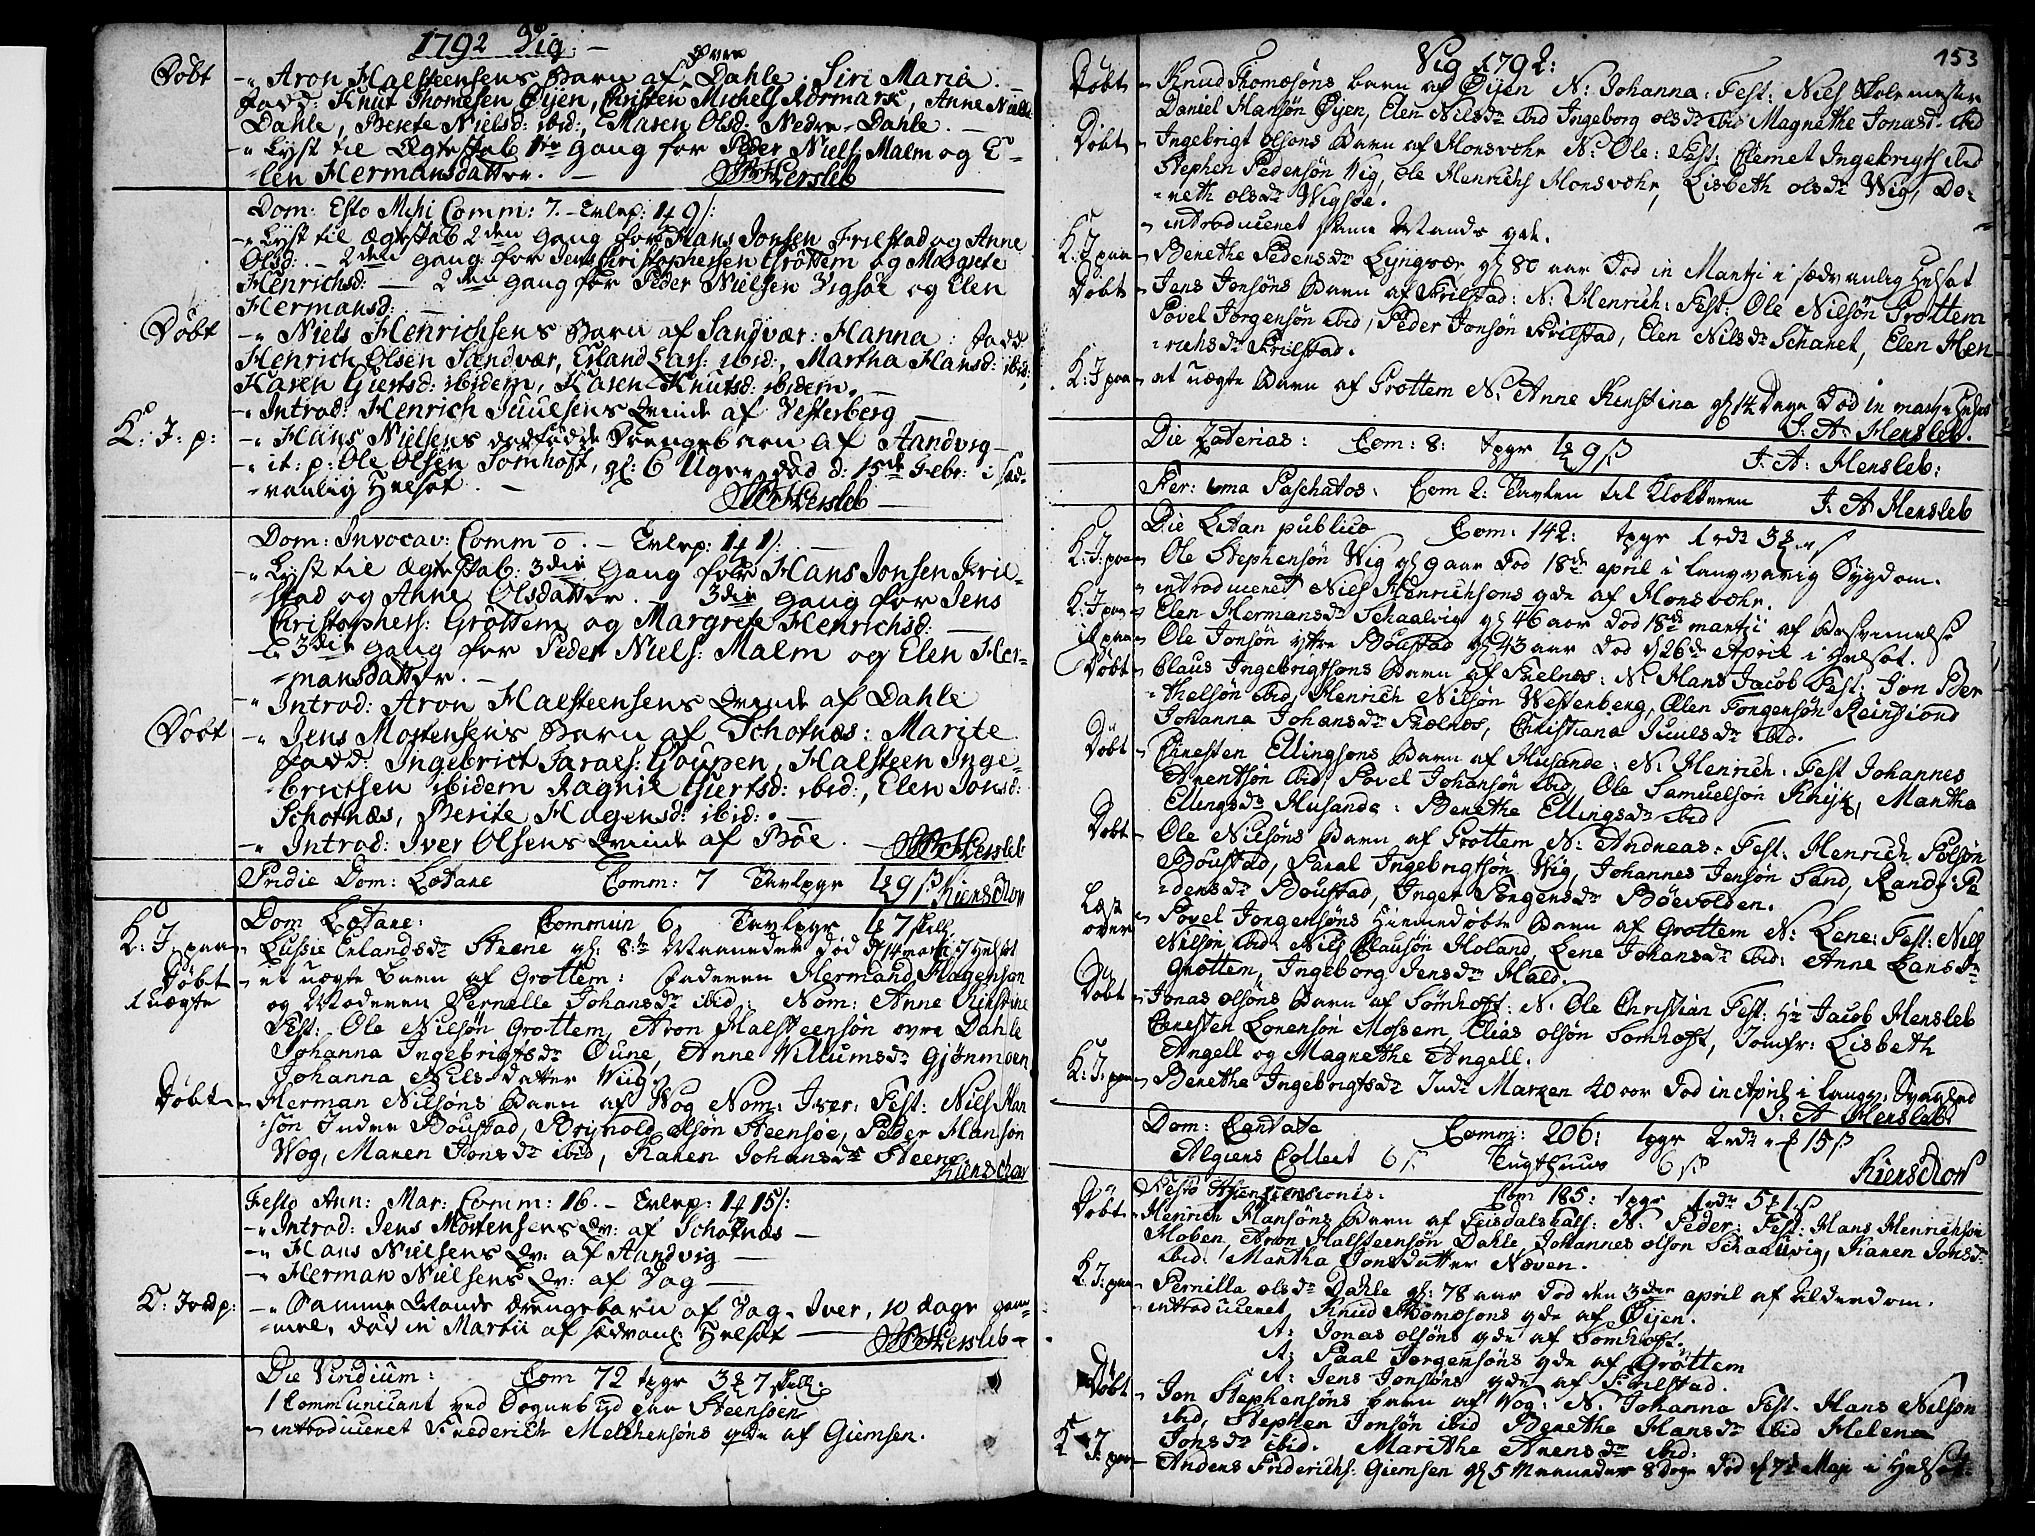 1792 Vig:
øvre
Døbt -" Aron Halsteensens Barn af Dahle: Siri Maria.
fadd: Knut Thomesen Øijen, Christen Michels Aormark, Anne Niels
Dahle, Berete Nielsd: ibid:, Maren Olsd: Nedre-Dahle.
-" Lyst til Ægteskab 1te Gang for Peder Niels: Malm og E-
-len Hermansdatter. Hersleb
Dom: Esto Mihi Comm: 7.- Tvlep: 1 9 s:
-" Lyst til Ægteskab 2den Gang for Hans Jonsen Frilstad og Anne
Olsd: - 2den Gang for Jens Christophersen Grøttem og Margrete
Henrichsd: - 2den Gang for Peder Nielsen Vigsøe og Elen
Hermansd:
Døbt -" Niels Henrichsens Barn af Sandvær: Hanna: fadd:
Henrich Olsen Sandvær, Erland Lars: ibid:, Martha Hansd: ibid:
Karen Giertsd: ibidem, Karen Knutsd: ibidem.
-" Introd: Henrich Juulsens Qvinde af Vesterberg
K: J: p: -" Hans Nielsens dødfødde Drengebarn af Aandvig
-" it: p: Ole Olsen Somhoft, gl: 6 Uger død d: 15de Febr: i sæd-
-vanlig Helsot. Hersleb
Dom: Invocav: Comm 0. - Tvlep: 1 1 s:
-" Lyst til Ægteskab: 3die Gang for Hans Jonsen Fril-
stad og Anne Olsdatter. 3die Gang for Jens
Christophers: Grøttem og Margrete Henrichsd:
-" 3die Gang for Peder Niels: Malm og Elen Her-
-mansdatter.
-" Introd: Aron Halsteensens Qvinde af Dahle
Døbt -" Jens Mortensens Barn af Schotnæs: Marite
fadd: Ingebrict Taraes: Goupen, Halsteen Inge-
brictsen ibidem Ragnil Giertsd: ibid:, Elen Jonsd:
Schotnæs, Berite Hagensd: ibid:
-" Introd: Iver Olsens Qvinde af Bøe. Hersleb
Pridie Dom: Lætare Comm: 7 Tavlpgr 1 9 s Kierschow
Dom: Lætare: Commun 6 Tavlpgr 7 skill
K: J: paa - Lussie Erlandsdr Steene gl: 8: Maaneder død d 14 marti i Helsot
Døbt - et uægte barn af Grøttem: Faderen Hermand Hagensøn
1 uægte og Moderen Pernelle Johansdr ibid: Nom: Anne Kirstine
Fest: Ole Nilsøn Grøttem, Aron Halsteensøn øvre Dahle
Johanna Ingebrigtsdr Oune, Anne Villumsdr Gjønmoen
Johanna Nils-datter Viig.
Døbt - Herman Nilsøns Barn af Wog Nom: Iver: Fest: Niels Han
-søn Indre Boustad, Brynold olsøn Steensøe, Peder Hansøn
Wog, Maren Jonsdr ibid, Karen Johansdr Steene
Kierschow
Festo Ann: Mar: Comm: 16. - Tvlep: 1 15 s:
-" Introd: Jens Mortensens Qv: af Schotnæs
-" Hans Nielsens Qv: af Aandvig
-" Herman Nielsens Qv: af Vag
K: Jord p: -" Samme Mands Drengebarn af Vag, Iver, 10 dage gam-
-mel, død in Martii af sædvanl: Helsot Hersleb
Die Viridium: Com 72 tpgr 3 7 skill:
1 Communicant ved Sognebud paa Steensøen
- introduceret Frederich Melchersøns qde af Giemsen.
Vig 1792: 153
Døbt - Knud Thomesøns barn af Øijen N: Johanna: Fest: Niels Skolemester
Daniel Hansøn Øijen, Elen Nilsdr ibid Ingeborg olsdr ibid Magnethe Jonasd- ibid
Døbt - Ingebrigt olsøns Barn af Monsvohr N: Ole: Fest: Clemet Ingebrigts ibid
Stephen Pedersøn Wig, Ole Henrichs Monsvohr, Lisbeth olsdr Wig, Do-
-reth olsdr Wigsøe.
- introduceret samme Mands qde.
K: J: paa - Benethe Pedersdr Lyngvær gl 80 aar Død in Martzi i sædvanlig Helsot
Døbt - Jens Jonsøns Barn af Frilstad: N: Henrich: Fest: Ole Nilsøn Grottem
Povel Jørgensøn ibid, Peder Jonsøn Frilstad, Elen Nilsdr Schanet, Elen Hen
-richsdr Frilstad.
K: J: paa - et uægte Barn af Grottem N: Anne Kirstina gl 14 Dage Død in martzi Helsot
J: A: Hersleb.
Die Zaderias: Com: 8: tpgr 1 9 s J: A: Hersleb:
Fer: 1ma Paschatos: Com 2: Tavlen til Klokkeren J: A Hersleb
Die Litan publico Com: 142: tpgr 1 rdr 3 s
K: J: paa - Ole Stephensøn Wig gl 9 aar død 18de april i langvarig Sygdom.
- introduceret Niels Henrichsøns qde af Monsvohr.
K: J: paa - Elen Hermansdr Schaalvig gl 46 aar død 18de martzi af Besvimelse
it paa - Ole Jonsøn ytre Boustad gl 43 aar død d 26de April i Helsot.
Døbt - Claus Ingebrigtsøns Barn af Skelnæs: N: Hans Jacob Fest: Jon Peder
-thelsøn ibid, Henrich Nilsøn Westerberg, Elen Torgersøn Reinsiord
Johanna Johansdr Skelnæs, Christiana Juulsdr ibid.
Døbt - Chresten Ellingsøns Barn af Husande: N: Henrich: Fest Johannes
Arentsøn ibid, Povel Johansøn ibid, Ole Samuelsøn Rhijk, Martha
Ellingsdr Husande: Benethe Ellingsdr ibid
Døbt - Ole Nilsøns Barn af Grottem N: Andreas: Fest: Henrich Polsøn
Boustad, Paal Ingebrigtsøn Wig, Johannes Jensøn Sand, Randi Pe
-dersdr Boustad, Inger Torgersdr Bøevolden.
Læst over - Povel Jørgensøns Hiemmedøbte Barn af Grottem N: Lene: Fest: Niels
Nilsøn ibid: Nils Clausøn Holand, Lene Johansdr ibid: Anne Larsdr
Grøttem, Ingeborg Jensdr Hald.
Døbt - Jonas olsøns Barn af Somhoft: N: Ole Christian Fest: Hr Jacob Hersleb
Chresten Lorensøn Mossem, Elias olsøn Somhoft, Jomfr: Lisbeth
Angell og Magnethe Angell.
K: J: paa - Benetha Ingebrigtsdr Indr Marken 40 aar Død in April i langv: Svaghed
J: A Hersleb
Dom: Cantate Comm: 206: tpgr 2 rdr 15 s
Algiers Collect 6 s Tugthuus 6 s Kierschow
Festo Ascensionis: Com 185: tpgr 1 rdr 5 1 s
Døbt - Henrich Hansøns Barn af Feisdalshals: N: Peder: Fest: Hans Henrichsøn
Hoben Aron Halsteensøn Dahle Johannes olsøn Schaalvig, Karen Jonsdr
ibid: Martha Jonsdatter Næven.
K: J: paa - Pernilla olsdr Dahle gl: 78 aar død den 3die april af Alderdom.
- introduceret, Knud Thomesøns qde af Øijen.
it: Jonas olsøns qde af Somhoft.
it: Paal Jørgensøns qde af Grøttem
it: Jens Jonsøns qde af Frilstad.
Døbt - Jon Stephensøns barn af Wog: N: Johanna Fest: Hans Nilsøn
ibid, Stephen Jonsøn ibid Benethe Hansdr ibid Helena
Jonsdr ibid. Marithe Arensdr ibid:
K: J: paa - Anders Friderichs: Giemsen gl 5 Maaneder 8 dage død d 7de Maji i Helsot.